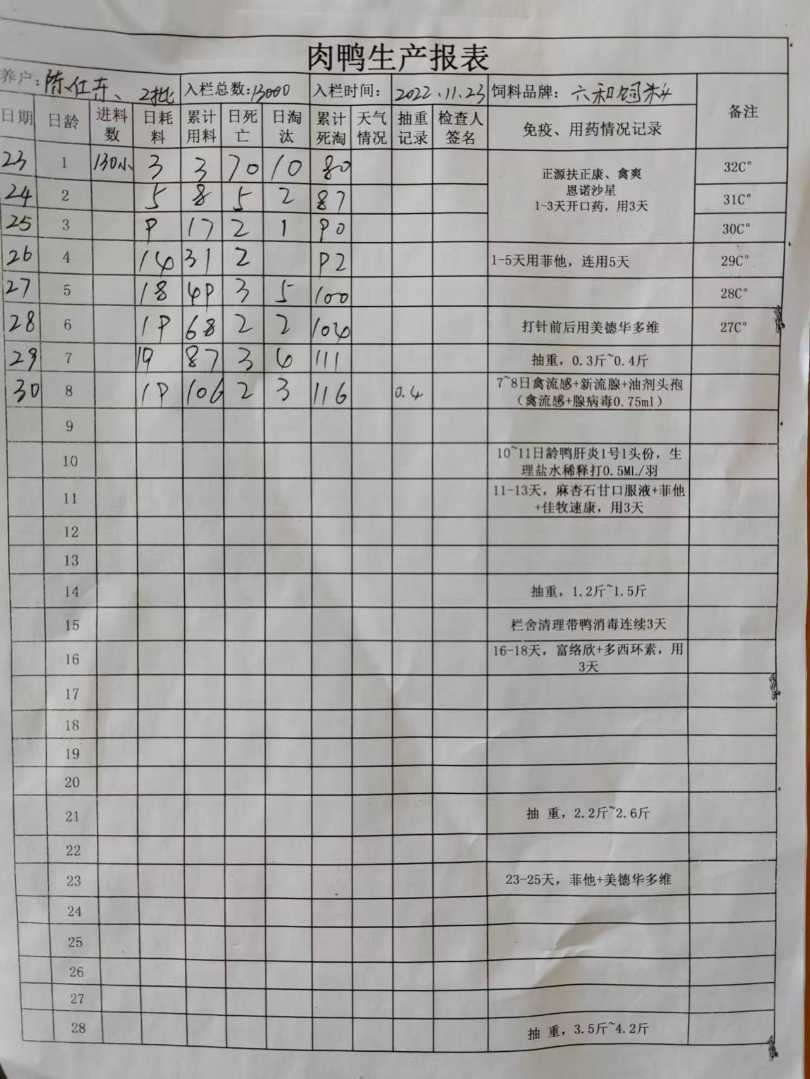 肉鸭生产报表
养户: 陈仕 2批 入栏总数:13000 入栏时间: 2022.11.23 饲料品牌: 六和饲料 备注
日期 日龄 进料数 日耗料 累计用料 日死亡 日淘汰 累计死淘 天气情况 抽重记录 检查人签名 免疫、用药情况记录
23 1 130小 3 3 70 10 80 正源扶正康、禽爽 32C°
恩诺沙星
1-3天开口药，用3天
24 2 5 8 5 2 87 31C°
25 3 9 17 2 1 90 30C°
26 4 14 31 2 92 1-5天用菲他，连用5天 29C°
27 5 18 49 3 5 100 28C°
28 6 19 68 2 2 104 打针前后用美德华多维 27C°
29 7 19 87 3 4 111 抽重，0.3斤~0.4斤
30 8 19 106 2 3 116 0.4 7~8日禽流感+新流腺+油剂头孢
（禽流感+腺病毒0.75ml）
9
10 10~11日龄鸭肝炎1号1头份，生
理盐水稀释打0.5ML/羽
11 11-13天，麻杏石甘口服液+菲他
+佳牧速康，用3天
12
13
14 抽重，1.2斤~1.5斤
15 栏舍清理带鸭消毒连续3天
16 16-18天，富络欣+多西环素，用
3天
17
18
19
20
21 抽 重，2.2斤~2.6斤
22
23 23-25天，菲他+美德华多维
24
25
26
27
28 抽 重，3.5斤~4.2斤